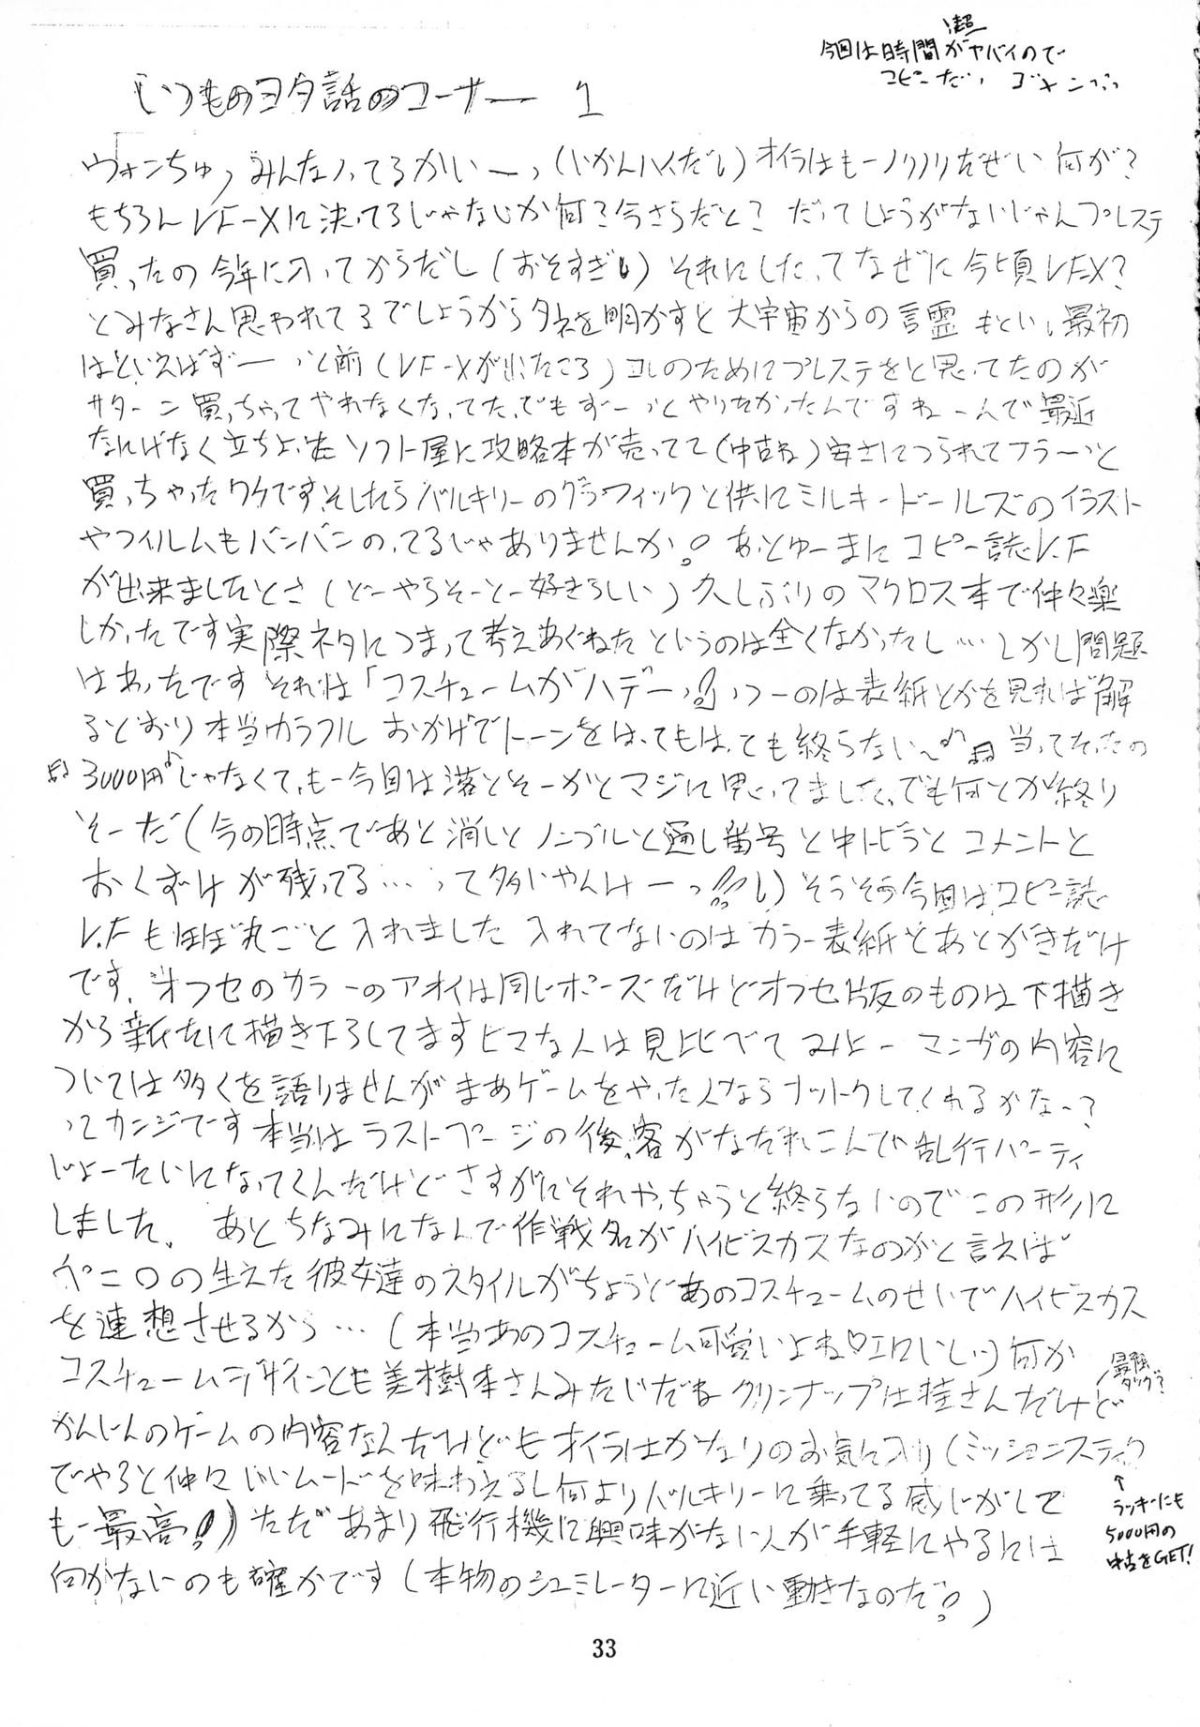 今回は時間が超ヤバイので
コピーだっ ゴメンッ
いつものヨタ話のコーナー 1
ウォンちゅっみんなノってるかいーっ(いかんハイだい)オイラはもーノリノリだぜい何が?
もちろんV.F-Xに決ってるじゃないか何?今さらだと? だってしょうがないじゃんプレステ
買ったの今年に入ってからだし(おそすぎい)それにしたってなぜに今頃V.F-X?
とみなさん思われてるでしょうからタネを明かすと大宇宙からの言霊 もとい、最初
はといえばずーーっと前(V.F-Xが出たころ)コレのためにプレステをと思ってたのが
サターン買っちゃってやれなくなってた、でもずーっとやりたかったんですねーんで最近
なにげなく立ちよった ソフト屋に攻略本が売ってて(中古ね)安さにつられてフラーっと
買っちゃったワケです、そしたらバルキリーのグラフィックと供にミルキードールズのイラスト
やフィルムもバンバンのってるじゃありませんか!あっとゆーまにコピー誌V.F
が出来ましたとさ(どーやらそーとー好きらしい)久しぶりのマクロス本で仲々楽
しかったです実際ネタにつまって考えあぐねたというのは全くなかったし…しかし問題
はあったです それは「コスチュームがハデーっ!!」っつーのは表紙とかを見れば解
るとおり本当カラフル おかげでトーンをはってもはっても終らない〜♪♫当ってたったの
♫3000円♪じゃなくて、もー今回は落とそーかとマジに思ってました、でも何とか終り
そーだ(今の時点であと消しとノンブルと通し番号と中トビラとコメントと
おくずけが残ってる…って多いやんけーっ!!い)そうそう今回はコピー誌
V.Fもほぼ丸ごと入れました 入れてないのはカラー表紙とあとがきだけ
です、オフセのカラーのアオイは同じポーズだけどオフセ版のものは下描き
から新たに描き下ろしてますヒマな人は見比べてみよー マンガの内容に
ついては多くを語りませんがまあゲームをやった人ならナットクしてくれるかなー?
ってカンジです本当はラストページの後、客がなだれこんで乱行パーティ
じょーたいになってくんだけどさすがにそれやっちゃうと終らないのでこの形に
しました。 あとちなみになんで作戦名がハイビスカスなのかと言えば
ペニ〇の生えた彼女達のスタイルがちょうどあのコスチュームのせいでハイビスカス
を連想させるから…(本当あのコスチューム可愛いよね♡エロいしい)何か
コスチュームデザインとも美樹本さんみたいだねクリンナップは桂さんだけど
最強タッグ?
かんじんのゲームの内容なんだけどもオイラはかなりのお気に入り(ミッションスティク
でやると仲々いいムードを味わえるし何よりバルキリーに乗ってる感じがして
もー最高!!)ただあまり飛行機に興味がない人が手軽にやるには
何かないのも確かです(本物のシュミレーターに近い動きなのだ!)
↑
ラッキーにも
5000円の
中古をGET!
33